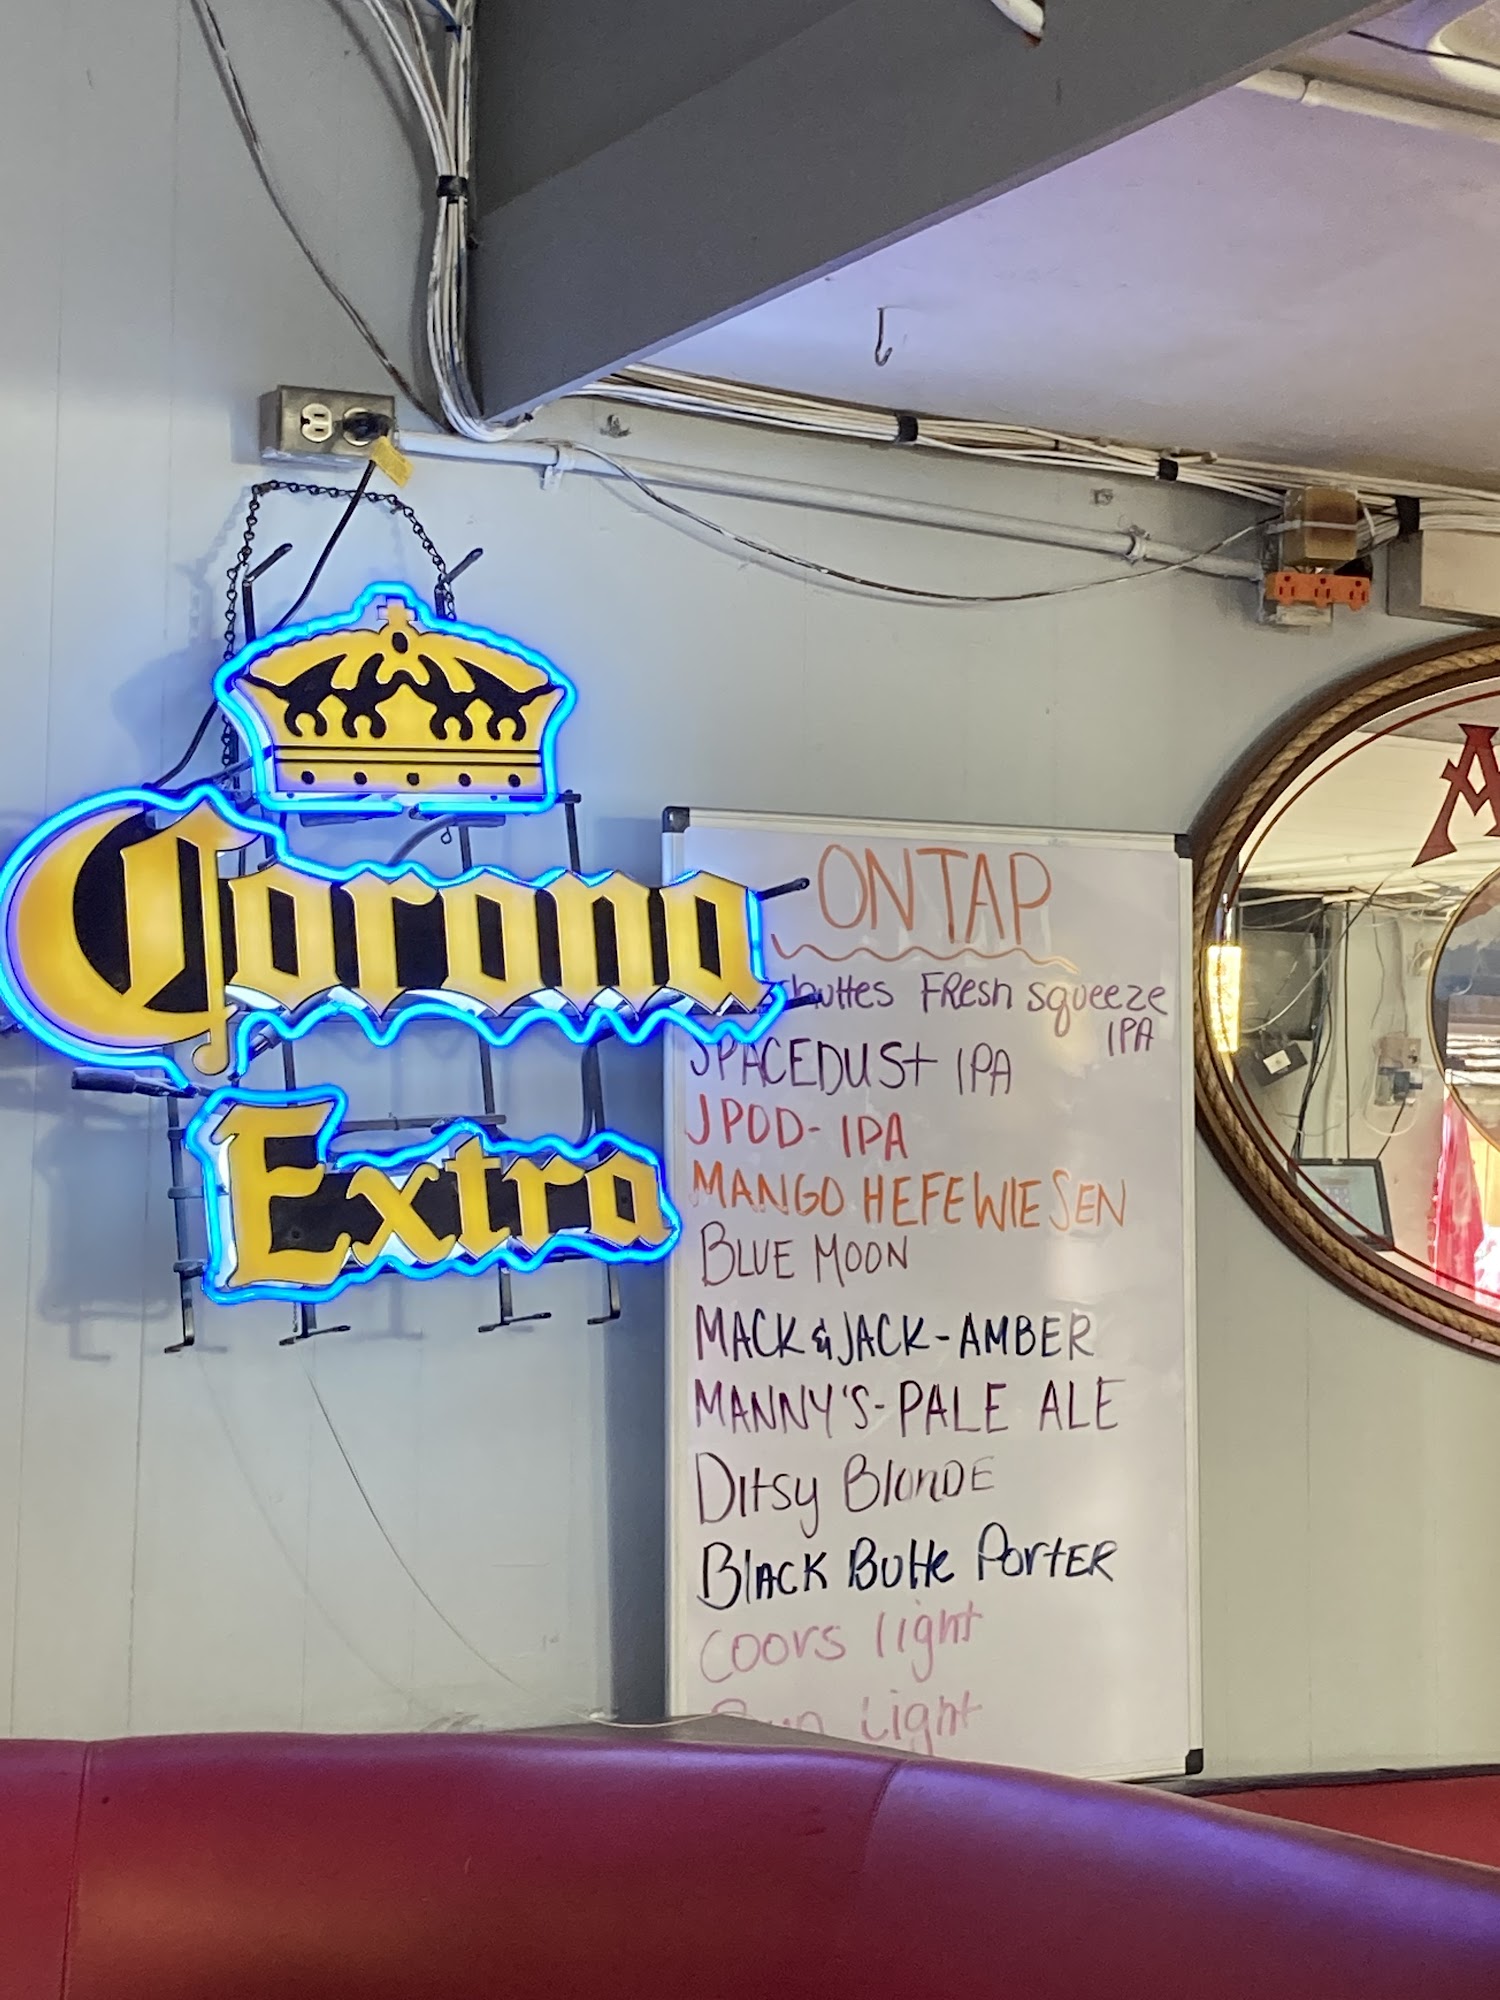 Corona
Extra
ON TAP
chuttes FResh squeeze
IPA
SPACEDUSt IPA
JPOD- IPA
MANGO HEFEWIESEN
BLUE MOON
MACK & JACK-AMBER
MANNY'S-PALE ALE
Ditsy BlonDE
BlACK Butte PortER
Coors light
Light
A